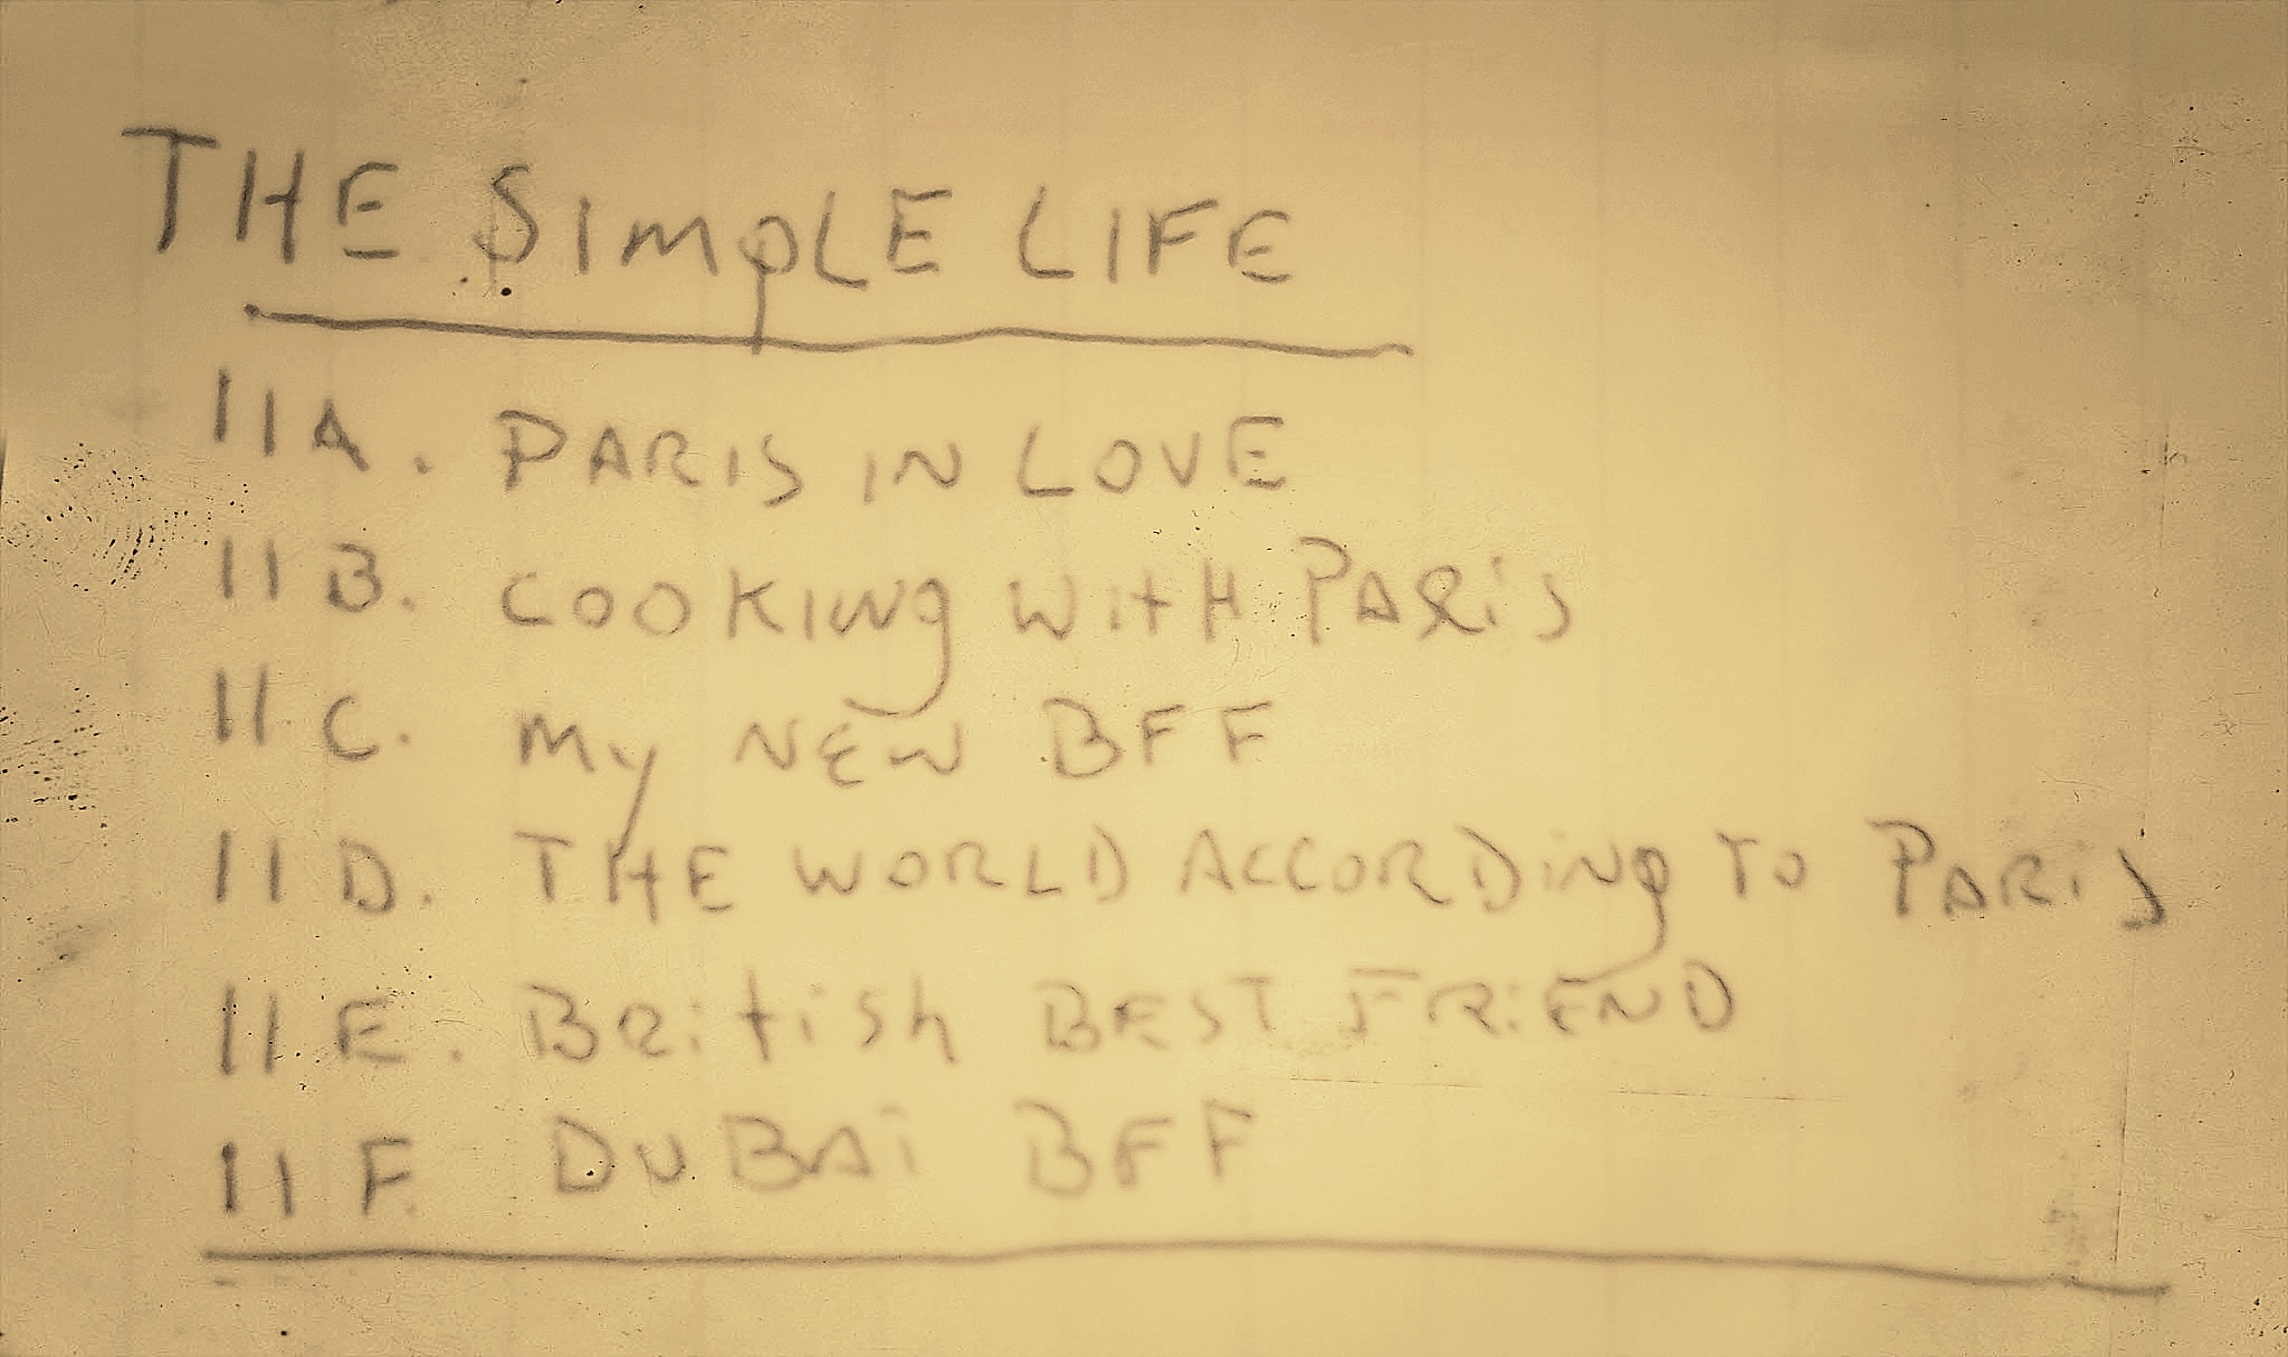 THE SIMpLE LIFE
11A. PARIS IN LOVE
11B. COOKINg WitH PARiS
11C. My NEW BFF
11D. THE WORLD ACCORDiNg TO PARiS
11E. BRitish BEST FRiEND
11F. DUBAi BFF